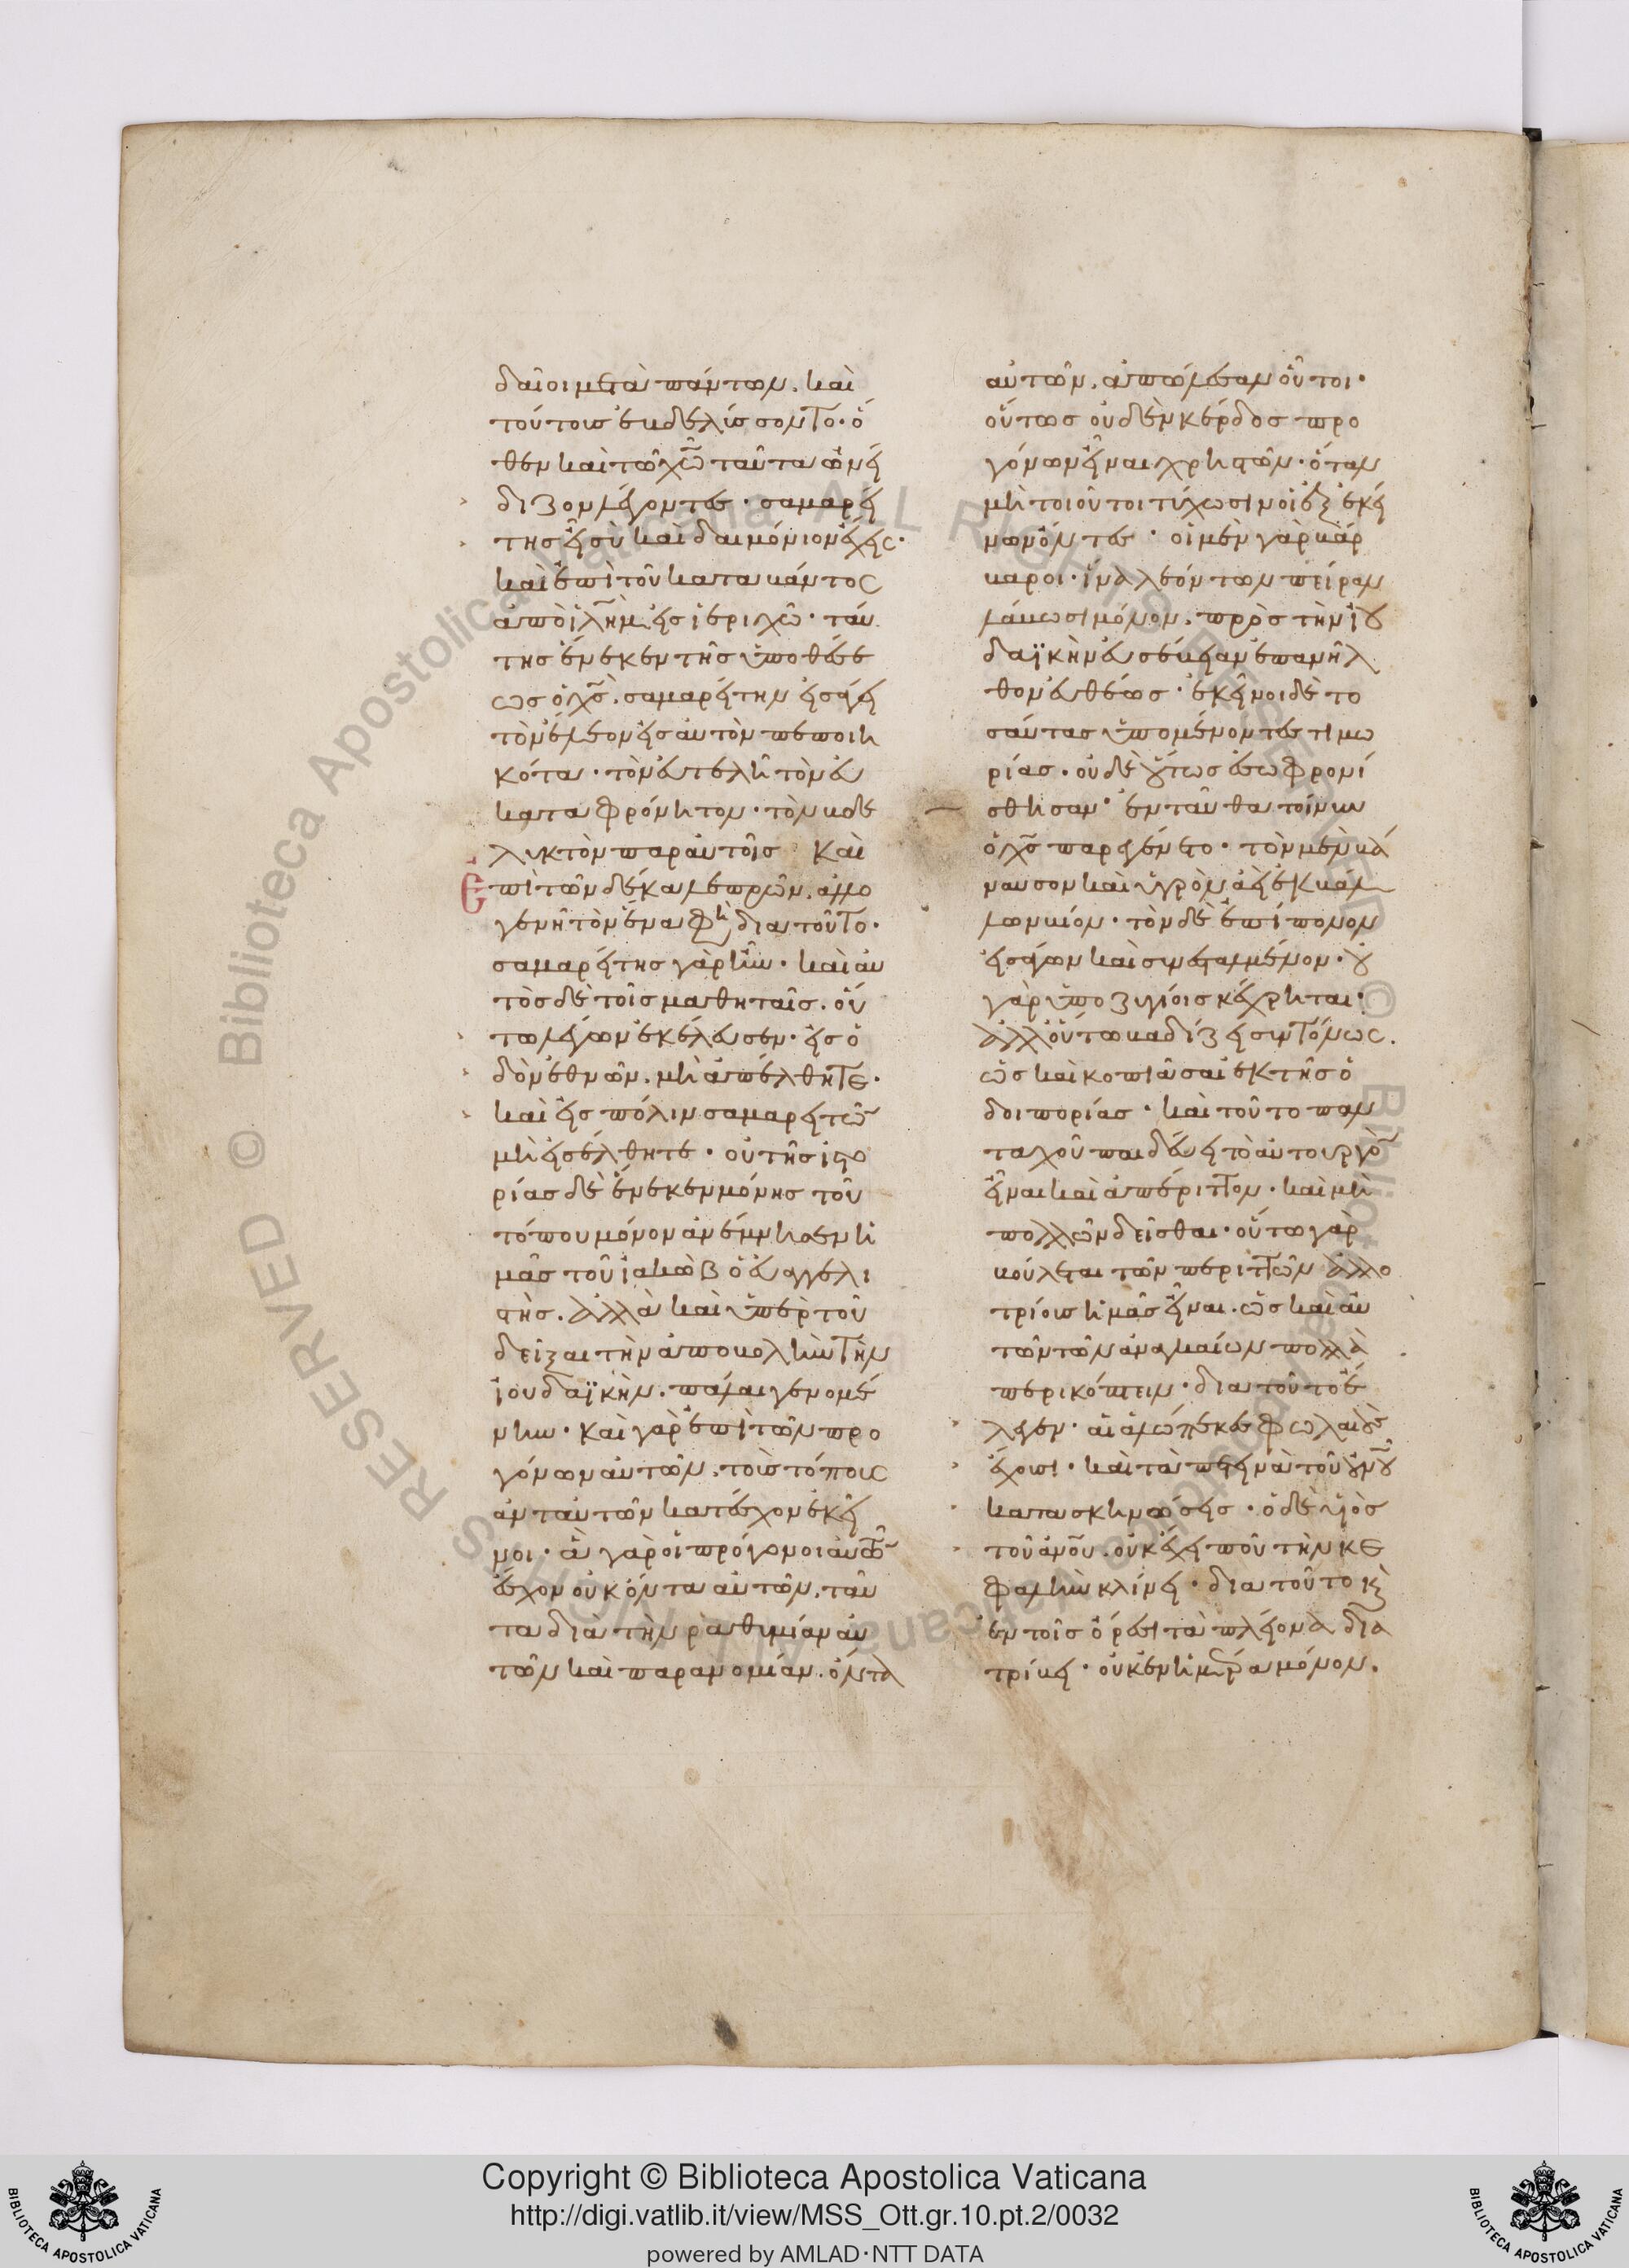 δαῖοι μετὰ πάντων. καὶ
τούτοις ἐβδελύσσοντο· ὅ
θεν καὶ τῶ χῶ ταῦτα ὠνεί
διζον λέγοντες· σαμαρεί
της εἶ σὺ καὶ δαιμόνιον ἔχεις·
καὶ ἐπὶ τοῦ καταβάντος
ἀπὸ ἱλῆμ εἰς ἱεριχῶ· ταύ
της ἕνεκεν τῆς ὑποθέσε
ως ὁ χς. σαμαρείτην εἰσάγει
τὸν ἔλεον εἰς αὐτὸν πεποιη
κότα· τὸν εὐτελῆ τὸν εὐ
καταφρόνητον· τὸν βδε
λυκτὸν παρ αὐτοῖς Καὶ
ἐπὶ τῶν δέκα λεπρῶν. ἀλλο
γενῆ τὸν ἕνα φη διατοῦτο·
σαμαρείτης γὰρ ἦν· καὶ αὐ
τὸς δὲ τοῖς μαθηταῖς. οὕ
τω λέγων ἐκέλευσεν· εἰς ὁ
δὸν ἐθνῶν. μὴ ἀπέλθητε·
καὶ εἰς πόλιν σαμαρειτῶ
μὴ εἰσέλθητε· οὐ τῆς ἱστο
ρίας δὲ ἕνεκεν μόνης τοῦ
τόπου μόνον ἀνέμνησεν ἡ
μᾶς τοῦ ἰακὼβ ὁ εὐαγγελι
στὴς. ἀλλὰ καὶ ὑπὲρ τοῦ
δεῖξαι τὴν ἀποβολὴν τὴν
ἰουδαϊκὴν. πάλαι γενομέ
νην· καὶ γὰρ ἐπὶ τῶν προ
γόνων αὐτῶν. τοὺς τόπους
ἀντ αὐτῶν κατέσχον ἐκεῖ
νοι· ἃ γὰρ οἱ πρόγονοι αὐτῶ
ἔσχον οὐκ ὄντα αὐτῶν. ταῦ
τα διὰ τὴν ῥαθυμίαν αὐ
τῶν καὶ παρανομίαν. ὄντα
αὐτῶν. ἀπώλεσαν οὗτοι·
οὕτως οὐδὲν κέρδος προ
γόνων εἶναι χρηστῶν· ὅταν
μὴ τοιοῦτοι τύχωσιν οἱ ἐξ ἐκεί
νων ὄντες· οἱ μὲν γὰρ βάρ
βαροι· ἵνα λεόντων πεῖραν
λάβωσι μόνον. πρὸς τὴν ἰου
δαϊκὴν εὐσέβειαν ἐπανῆλ
θον εὐθέως· ἐκεῖνοι δὲ το
σαύτας ὑπομένοντες τιμω
ρίας· οὐδὲ οὕτως ἐσωφρονί
σθησαν· ἐνταῦθα τοίνυν
ὁ χς παρεγένετο· τὸν μὲν βά
ναυσον καὶ ὑγρὸν ἀεὶ ἐκβάλ
λων βίον· τὸν δὲ ἐπίπονον
εἰσάγων καὶ συνεσταλμένον· οὐ
γὰρ ὑποζυγίοις κέχρηται·
ἀλλ οὕτω βαδίζει συντόμως.
ὡς καὶ κοπιᾶσαι ἐκ τῆς ὁ
δοιπορίας· καὶ τοῦτο παν
ταχοῦ παιδεύει τὸ αὐτουργὸ
εἶναι καὶ ἀπέριττον· καὶ μὴ
πολλῶν δεῖσθαι· οὕτω γὰρ
βούλεται τῶν περιττῶν ἀλλο
τρίους ἡμᾶς εἶναι. ὡς καὶ αὐ
τῶν τῶν ἀναγκαίων πολλὰ
περικόπτειν· διατοῦτο ἔ
λεγεν· αἱ ἀλώπεκες φωλαιοὺς
ἔχουσι· καὶ τὰ πετεινὰ τοῦ οὐνοῦ
κατασκηνώσεις· ὁ δὲ υἱὸς
τοῦ ἀνου. οὐκ ἔχει ποῦ τὴν κε
φαλὴν κλίνει· διατοῦτο καὶ
ἐν τοῖς ὄρεσι τὰ πλείονα δια
τρίβει· οὐκ ἐν ἡμέρα μόνον.
Copyright © Biblioteca Apostolica Vaticana
http://digi.vatlib.it/view/MSS_Ott.gr.10.pt.2/0032
powered by AMLAD·NTT DATA